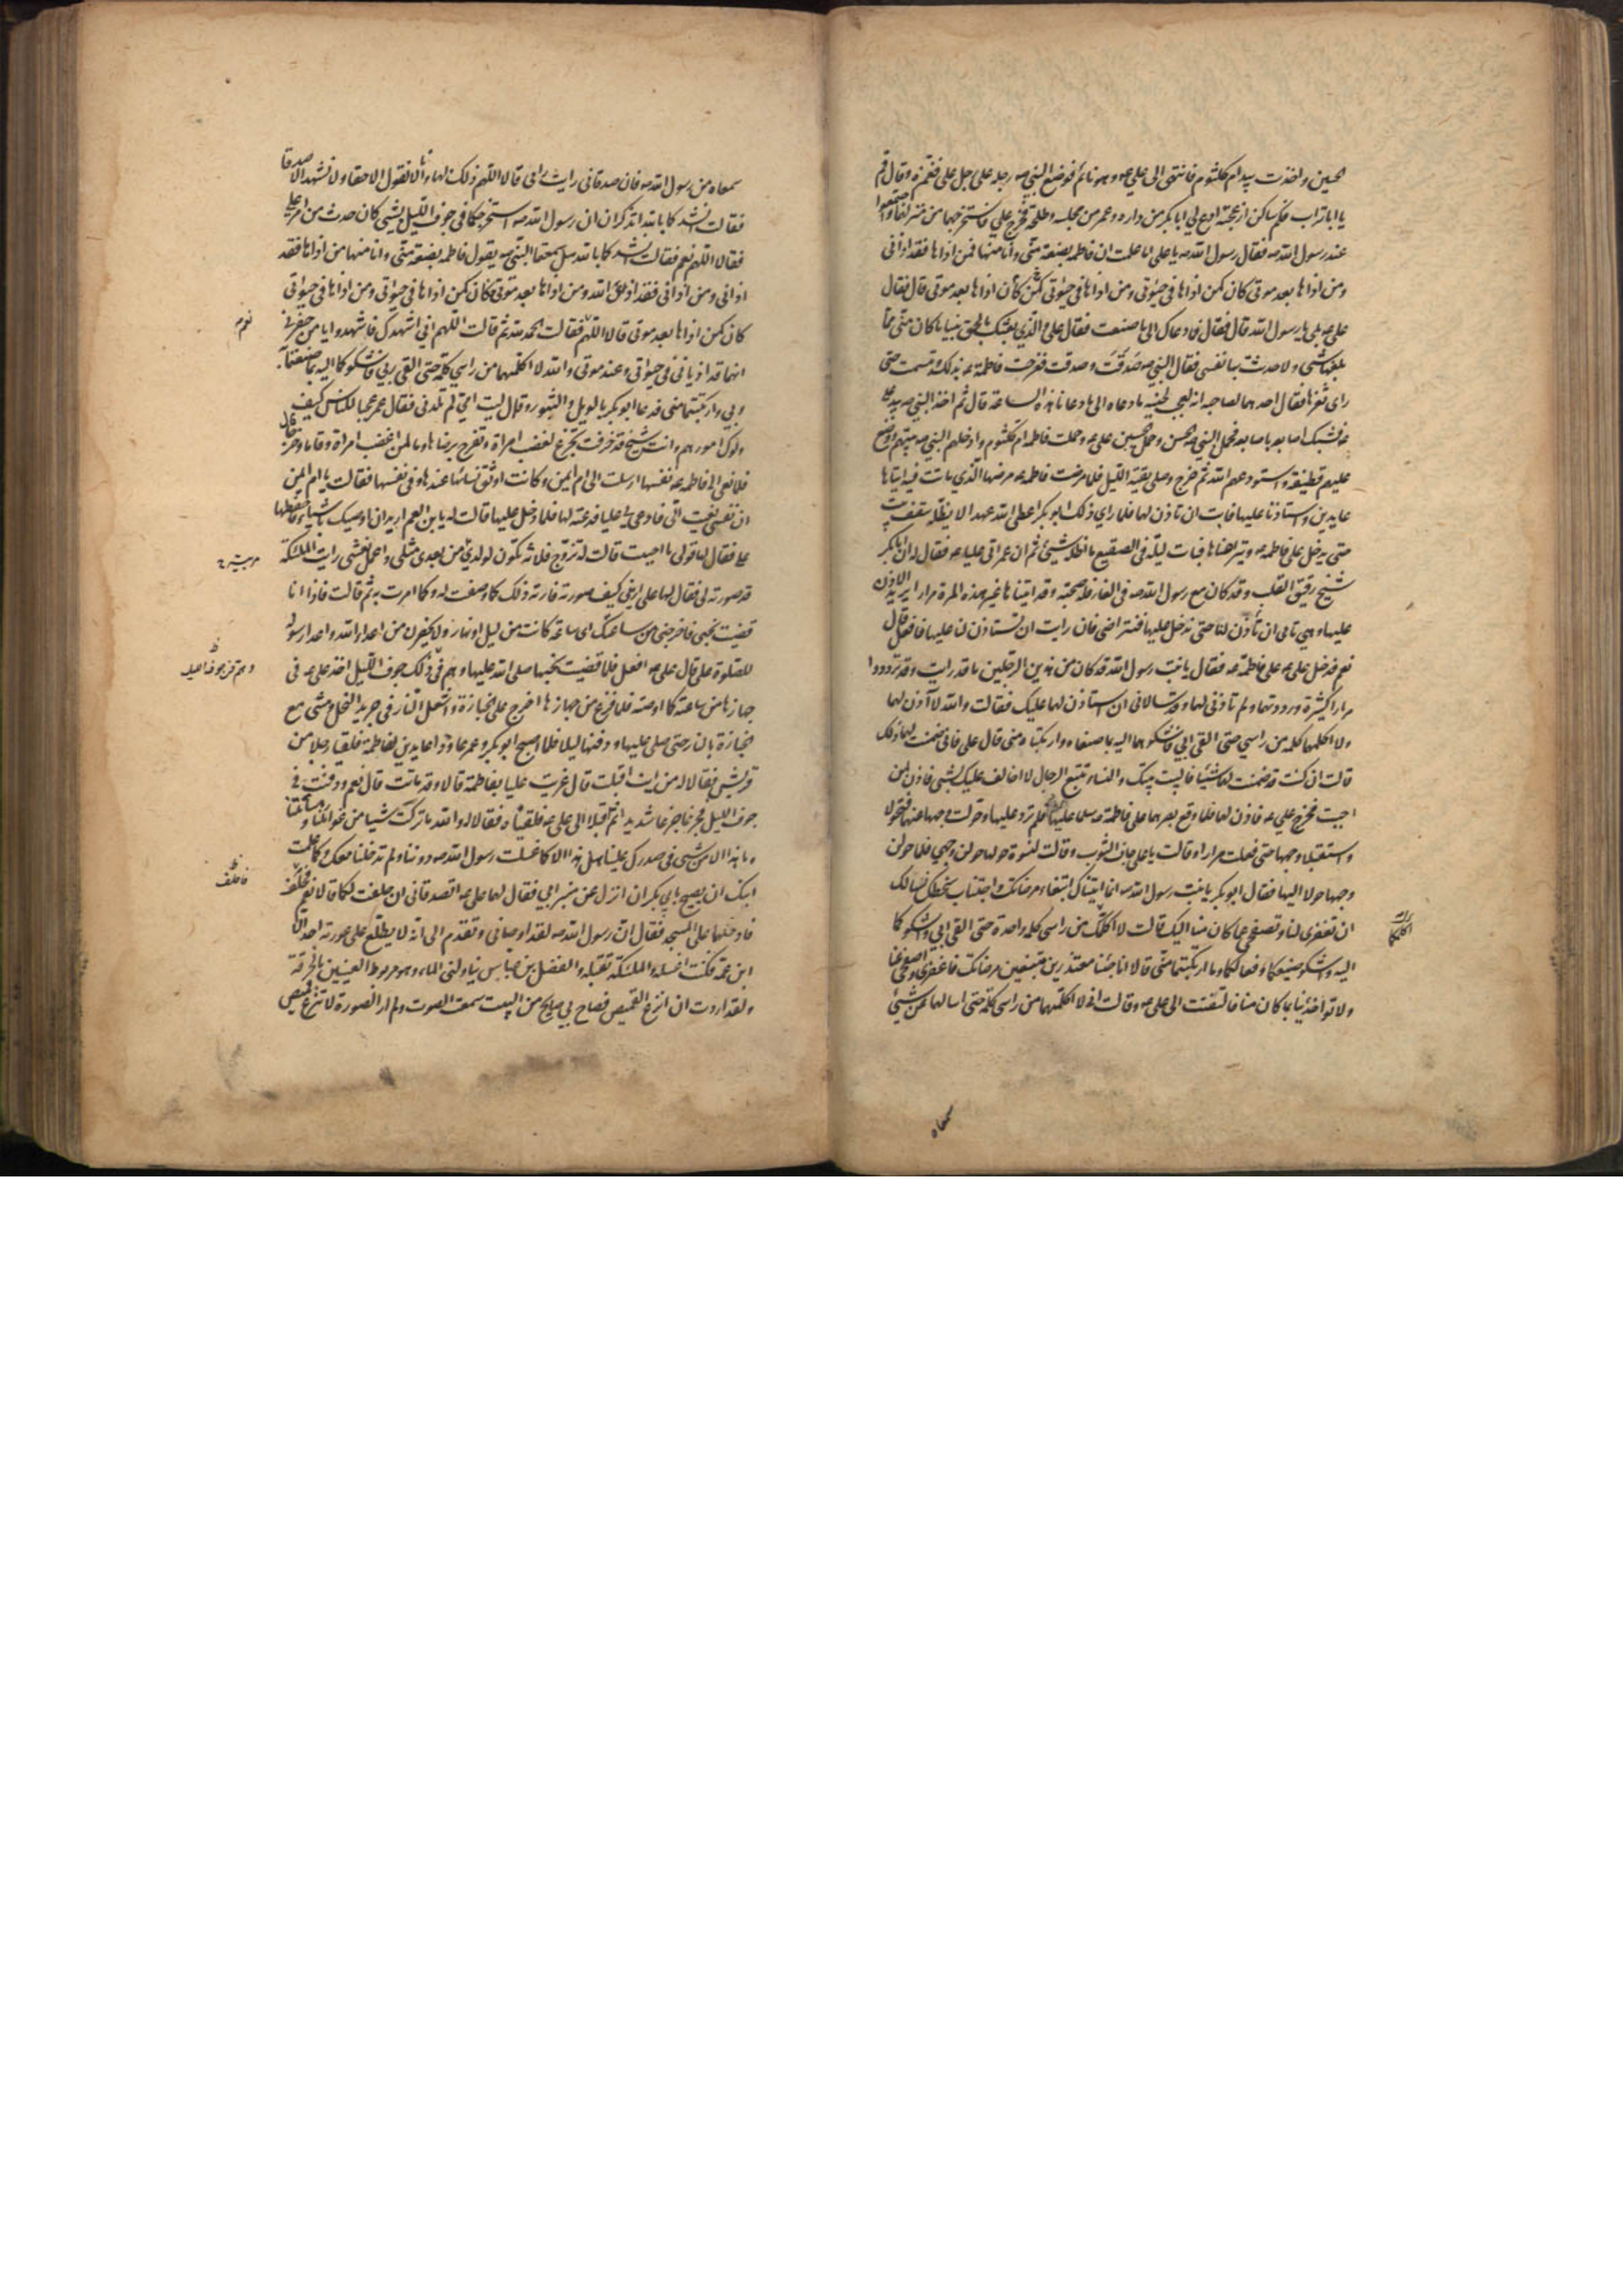 الحسين واخذت بيد ام كلثوم فانتهى الى علي عه وهو نائم فوضع النبي صه رجله على رجل علي فغمزه وقال قم
يا ابا تراب فكم ساكن ازعجته ادع لي ابا بكر من داره وعمر من مجلسه وطلحة فخرج علي فاستخرجهما من منزلهما واجتمعوا
عند رسول الله صه فقال رسول الله صه يا علي اما علمت ان فاطمه بضعة مني وانا منها فمن اذاها فقد اذاني
ومن اذاها بعد موتي كان كمن اذاها في حيوتي ومن اذاها في حيوتي كمن كان اذاها بعد موتي قال فقال
علي عه بلى يا رسول الله قال فقال فما دعاك الى ما صنعت فقال علي والذي بعثك بالحق نبيا ما كان مني مما
بلغها شئ ولا حدثت بها نفسي فقال النبي صه صدقت وصدقت ففرحت فاطمة عه بذلك وتبسمت حتى
راى ثغرها فقال احدهما لصاحبه انه لعجب لحينه ما دعاه الى ما دعانا هذه الساعة قال ثم اخذ النبي صه بيد علي
عه فشبك اصابعه باصابعه فحمل النبي صه الحسن وحمل الحسين علي عه وحملت فاطمه ام كلثوم وادخلهم النبي صه بيتهم ووضع
عليهم قطيفة واستودعهم الله ثم خرج وصلى بقية الليل فلما مرضت فاطمه عه مرضها الذي ماتت فيه اتياها
عايدين واستاذنا عليها فابت ان تاذن لهما فلما راى ذلك ابو بكر اعطى الله عهدا لا يظله سقف بيت
حتى يدخل على فاطمه عه ويتراضاها فبات ليلة في الصقيع ما اظله شئ ثم ان عمر اتى عليا عه فقال له ان ابا بكر
شيخ رقيق القلب وقد كان مع رسول الله صه في الغار فله صحبته وقد اتيناها غير هذه المرة مرارا نريد الاذن
عليها وهي تابى ان تأذن لنا حتى ندخل عليها فنتراضى فان رايت ان تستاذن لنا عليها فافعل قال
نعم فدخل علي عه على فاطمة عه فقال يا بنت رسول الله قد كان من هذين الرجلين ما قد رايت وقد ترددوا
مرارا كثيرة ورددتهما ولم تاذني لهما وقد سالاني ان استاذن لهما عليك فقالت والله لا آذن لهما
ولا اكلمهما كلمه من راسي حتى القى ابي فاشكوهما اليه بما صنعاه وارتكباه مني قال علي فاني ضمنت لهما ذلك
قالت ان كنت قد ضمنت لهما شيئا فالبيت بيتك والنساء تتبع الرجال لا اخالف عليك بشئ فاذن لمن
احببت فخرج علي عه فاذن لهما فلما وقع بصرهما على فاطمة عه سلما عليها فلم ترد عليهما وحولت وجهها عنهما فتحولا
واستقبلا وجهها حتى فعلت مرارا وقالت يا علي جاف الثوب وقالت لنسوة حولها حولن وجهي فلما حولن
وجهها حولا اليها فقال ابو بكر يا بنت رسول الله صه انما اتيناك ابتغاء مرضاتك واجتناب سخطك نسالك
ان تغفري لنا وتصفحي عما كان منا اليك قالت لا اكلمكما من راسي كلمه واحدة حتى القى ابي واشكوكما
اليه واشكو صنيعكما وفعالكما وما ارتكبتما مني قالا انا جئنا معتذرين مبتغين مرضاتك فاغفري واصفحي عنا
ولا تواخذينا بما كان منا فالتفتت الى علي عه وقالت اني لا اكلمهما من راسي كلمة حتى اسالهما عن شئ
سمعاه
سمعاه من رسول الله صه فان صدقاني رايت رايي قالا اللهم ذلك لها وانا لا نقول الا حقا ولا نشهد الا صدقا
فقالت انشدكما بالله اتذكران ان رسول الله صه استخرجكما في جوف الليل بشئ كان حدث من امر علي
فقالا اللهم نعم فقالت انشدكما بالله هل سمعتما النبي صه يقول فاطمه بضعة مني وانا منها من اذاها فقد
اذاني ومن اذاني فقد اذى الله ومن اذاها بعد موتي فكان كمن اذاها في حيوتي ومن اذاها في حيوتي
كان كمن اذاها بعد موتي قالا اللهم فقالت الحمد لله ثم قالت اللهم اني اشهدك فاشهدوا يا من حضرني
نعم
انهما قد اذياني في حيوتي وعند موتي والله لا اكلمهما من راسي كلمة حتى القى ربي فاشكوكما اليه بما صنعتما به
وبي وارتكبتما مني فدعا ابو بكر بالويل والثبور وقال ليت امي لم تلدني فقال عمر عجبا للناس كيف
ولوك امورهم وانت شيخ قد خرفت تجزع لغضب امراة وتفرح برضاها وما لمن اغضب امراة وقاما وخرجا قال
فلما نعي الى فاطمه عه نفسها ارسلت الى ام ايمن وكانت اوثق نسائها عندها وفي نفسها فقالت يا ام ايمن
ان نفسي نعيت الي فادعي لي عليا فدعته لها فلما دخل عليها قالت له يا بن العم اريد ان اوصيك باشياء فاحفظها
علي فقال لها قولي ما احببت قالت له تزوج فلانه تكون لولدي من بعدي مثلي واعمل نعشي رايت الملئكة
قد صورته لي فقال لها علي اريني كيف صورته فارته ذلك كما وصفت له وكما امرت به ثم قالت فاذا انا
قضيت نحبي فاخرجني من ساعتك اي ساعة كانت من ليل او نهار ولا يحضرن من اعداء الله واعداء رسوله
للصلوة علي قال علي عه افعل فلما قضيت نحبها صلى الله عليها وهم في ذلك جوف الليل اخذ علي عه في
جهازها من ساعته كما اوصته فلما فرغ من جهازها اخرج علي الجنازة واشعل النار في جريد النخل ومشى مع
الجنازة بالنار حتى صلى عليها ودفنها ليلا فلما اصبح ابو بكر وعمر عاودا عايدين لفاطمة فلقيا رجلا من
قريش فقالا له من اين اقبلت قال عزيت عليا بفاطمة قالا وقد ماتت قال نعم ودفنت في
جوف الليل فجزعا جزعا شديدا ثم اقبلا الى علي عه فلقياه فقالا له والله ما تركت شيئا من غوائلنا ومسائتنا
وما هذا الا من شئ في صدرك علينا هل هذا الا كما غسلت رسول الله صه دوننا ولم تدخلنا معك وكما علمت
ابنك ان يصيح بابي بكر ان انزل عن منبر ابي فقال لهما علي عه اتصدقاني ان حلفت لكما قالا نعم فحلف
فادخلهما على المسجد فقال ان رسول الله صه لقد اوصاني وتقدم الى انه لا يطلع على عورته احد الا
ابن عمه فكنت اغسله والملئكة تقلبه والفضل بن عباس يناولني الماء وهو مربوط العينين بالخرقة
ولقد اردت ان انزع القميص فصاح بي صايح من البيت سمعت الصوت ولم ار الصورة لا تنزع قميص